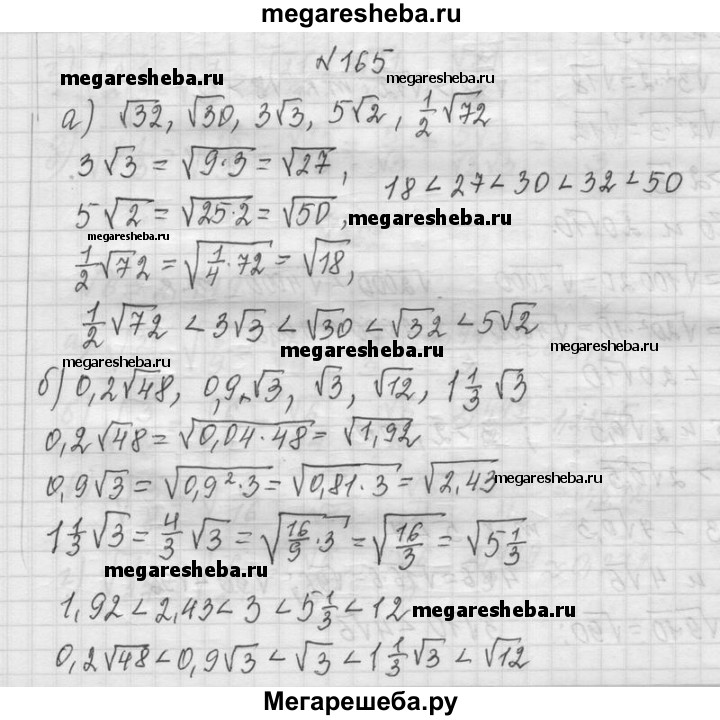 megaresheba.ru
№165
megaresheba.ru megaresheba.ru
а) √32, √30, 3√3, 5√2, 1/2 √72
3√3 = √9·3 = √27, 18 < 27 < 30 < 32 < 50
5√2 = √25·2 = √50, megaresheba.ru
megaresheba.ru
1/2 √72 = √1/4·72 = √18,
1/2 √72 < 3√3 < √30 < √32 < 5√2
megaresheba.ru megaresheba.ru
megaresheba.ru
б) 0,2√48, 0,9√3, √3, √12, 1 1/3 √3
0,2√48 = √0,04·48 = √1,92
0,9√3 = √0,9²·3 = √0,81·3 = √2,43 megaresheba.ru
1 1/3 √3 = 4/3 √3 = √16/9·3 = √16/3 = √5 1/3
megaresheba.ru
1,92 < 2,43 < 3 < 5 1/3 < 12 megaresheba.ru
0,2√48 < 0,9√3 < √3 < 1 1/3 √3 < √12
Мегарешеба.ру